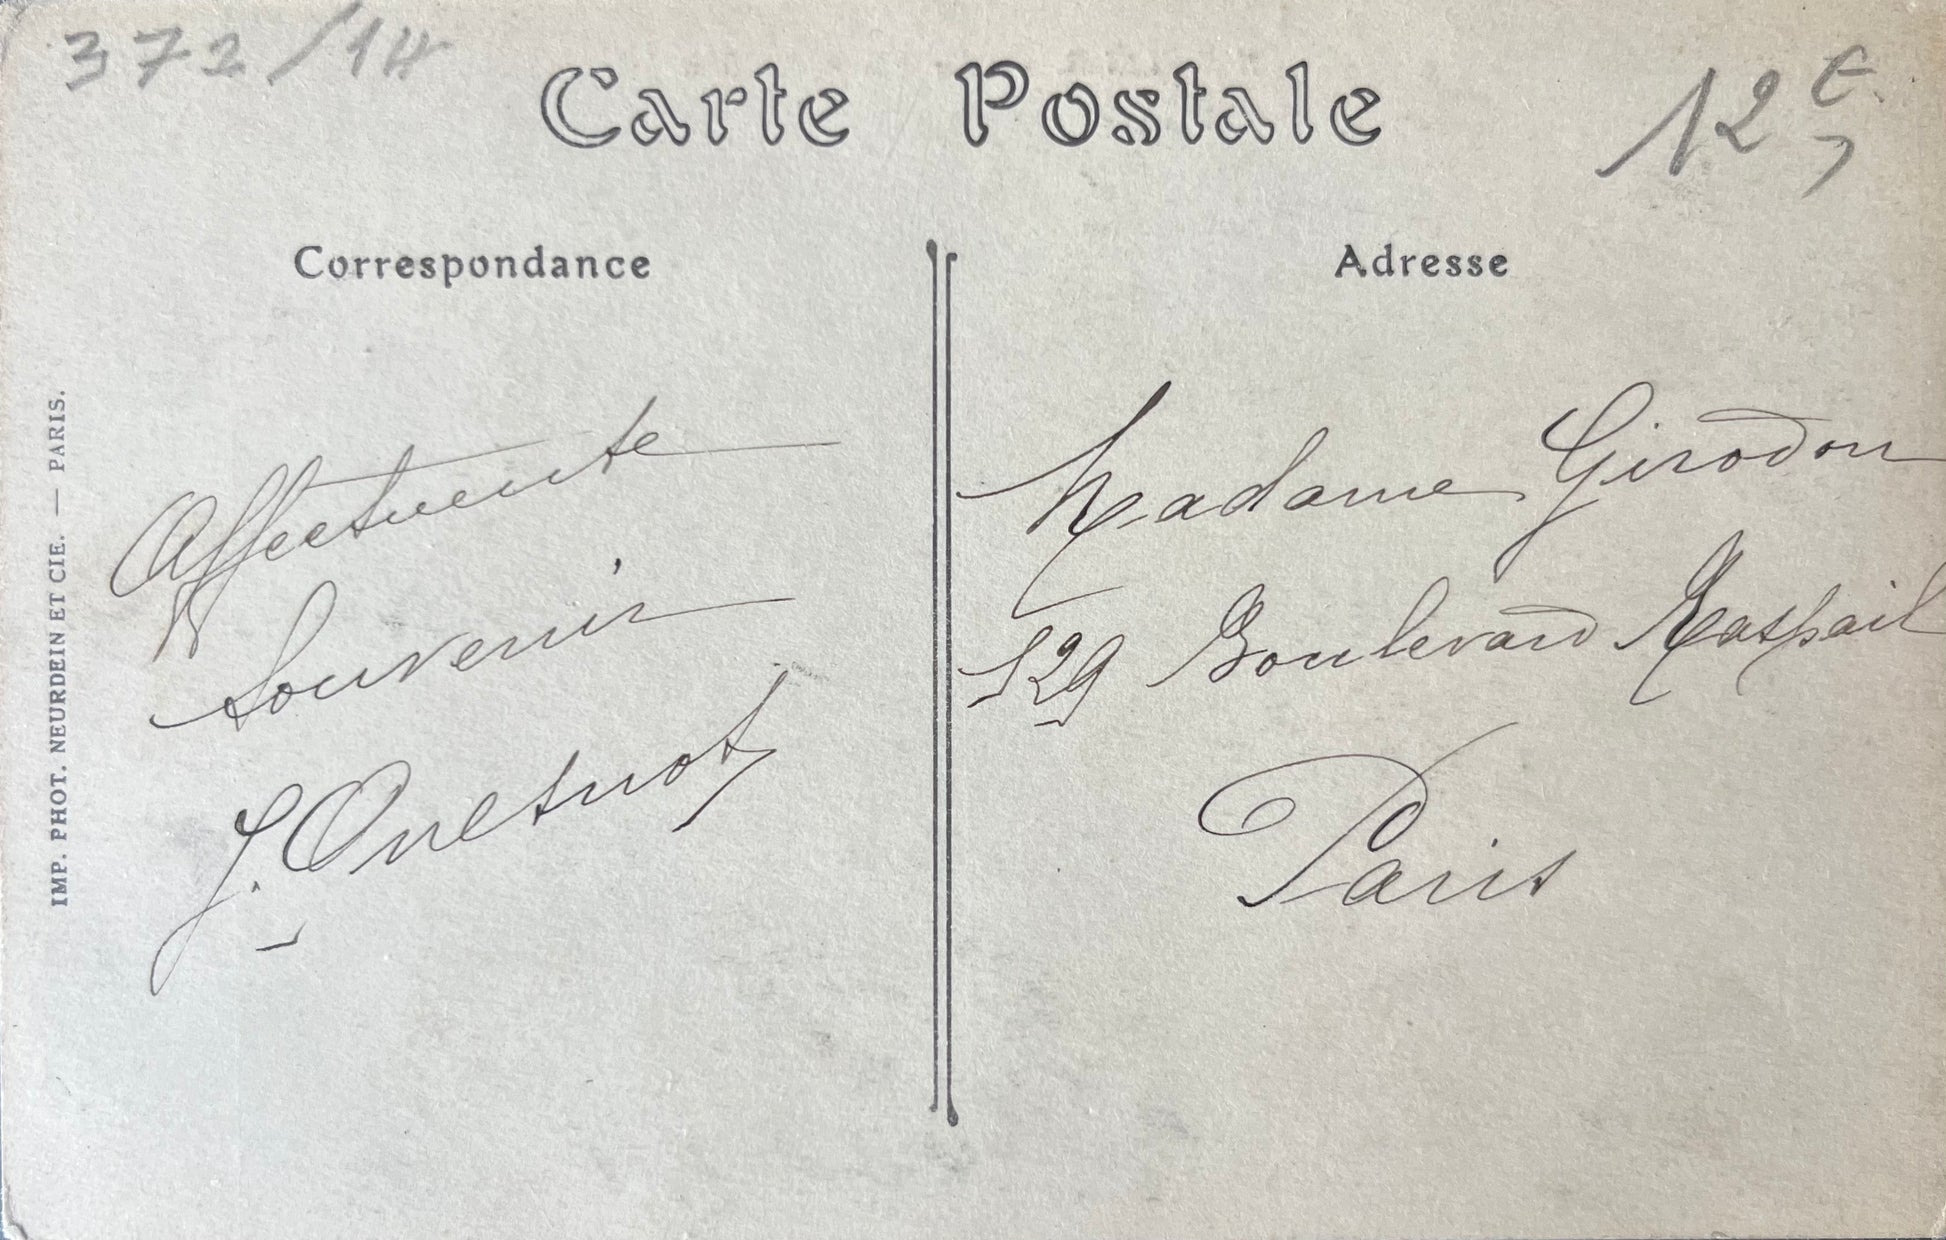 372/14
Carte Postale
12€
Correspondance
Adresse
Affectueux
Souvenir
J. Quesnot
Madame Girodon
129 Boulevard Raspail
Paris
IMP. PHOT. NEURDEIN ET CIE. — PARIS.